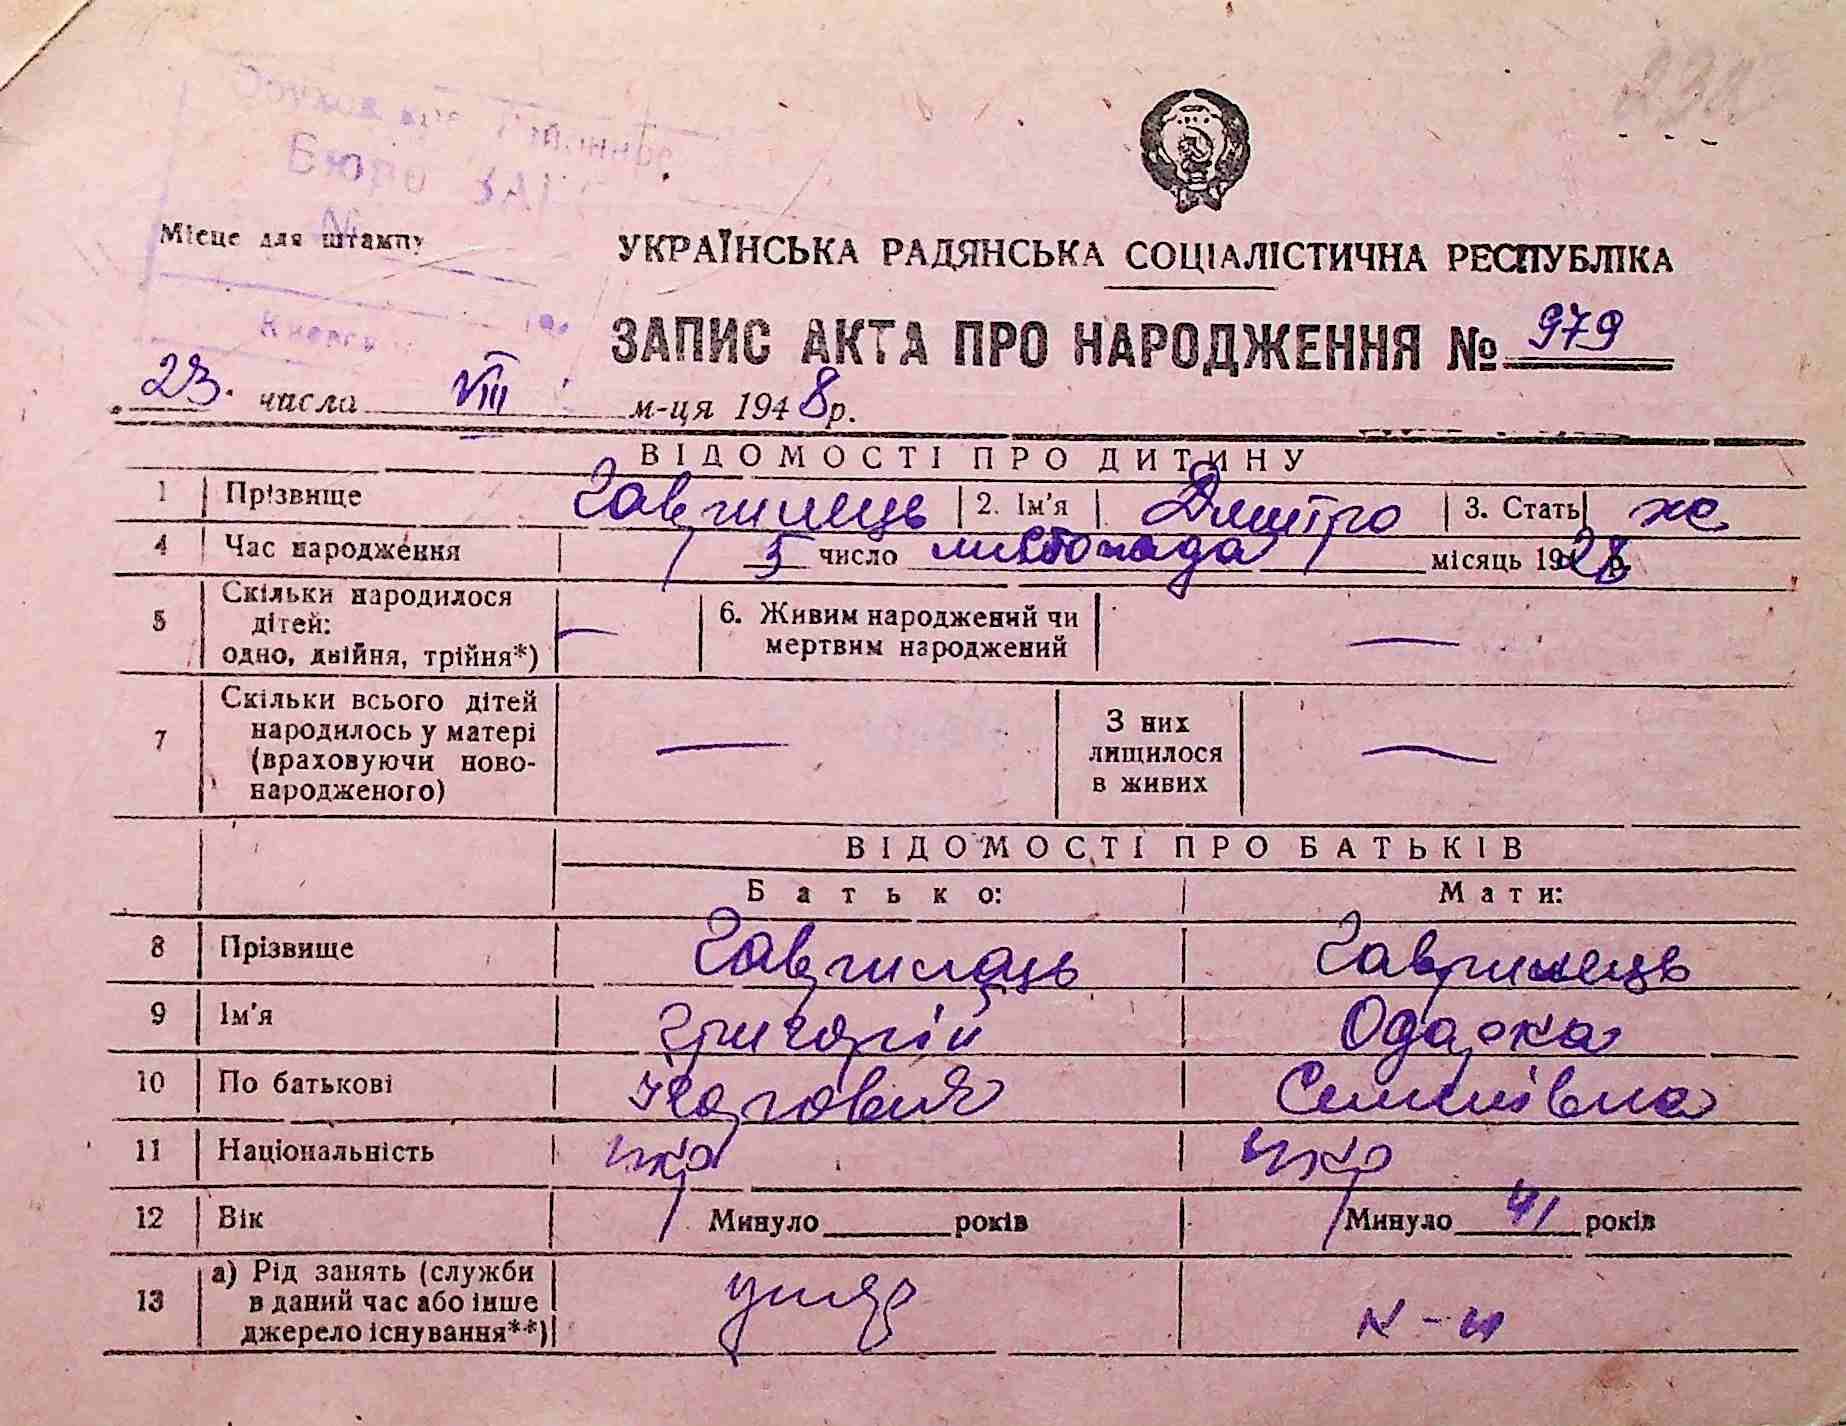 Бюро ЗАГС
№
Місце для штампу
УКРАЇНСЬКА РАДЯНСЬКА СОЦІАЛІСТИЧНА РЕСПУБЛІКА
ЗАПИС АКТА ПРО НАРОДЖЕННЯ № 979
23. числа VIII м-ця 1948р.
ВІДОМОСТІ ПРО ДИТИНУ
1 Прізвище Гаврилець 2. Ім'я Дмитро 3. Стать ж
4 Час народження 5 число листопада місяць 1928
5 Скільки народилося дітей: одно, двійня, трійня*) — 6. Живим народжений чи мертвим народжений —
7 Скільки всього дітей народилось у матері (враховуючи новонародженого) — З них лищилося в живих —
ВІДОМОСТІ ПРО БАТЬКІВ
Батько: Мати:
8 Прізвище Гаврилець Гаврилець
9 Ім'я Григорій Одарка
10 По батькові Семенівна
11 Національність укр укр
12 Вік Минуло років Минуло 41 років
13 а) Рід занять (служби в даний час або інше джерело існування**) умер к-ц